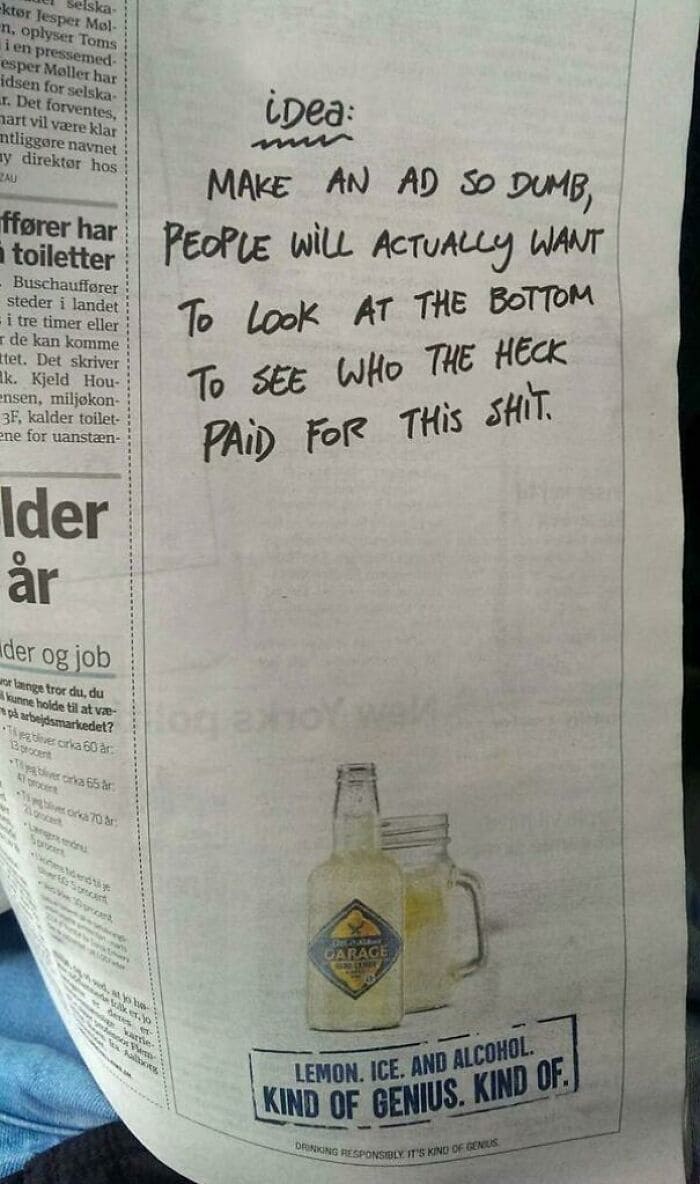 selska-
ktør Jesper Møl-
n, oplyser Toms
i en pressemed-
esper Møller har
idsen for selska-
r. Det forventes,
nart vil være klar
ntliggøre navnet
ny direktør hos
ZAU
ffører har
å toiletter
Buschauffører
steder i landet
i tre timer eller
r de kan komme
ttet. Det skriver
lk. Kjeld Hou-
ensen, miljøkon-
3F, kalder toilet-
ene for uanstæn-
lder
år
lder og job
vor længe tror du, du
l kunne holde til at væ-
e på arbejdsmarkedet?
• Til jeg bliver cirka 60 år:
13 procent
• Til jeg bliver cirka 65 år:
47 procent
• Til jeg bliver cirka 70 år:
21 procent
• Længere endnu:
5 procent
iDea:
MAKE AN AD SO DUMB,
PEOPLE WiLL ACTUALLY WANT
To LooK AT THE BOTTOM
To SEE WHO THE HECK
PAiD FoR THiS SHiT.
GARAGE
LEMON. ICE. AND ALCOHOL.
KIND OF GENIUS. KIND OF.
DRINKING RESPONSIBLY. IT'S KIND OF GENIUS.